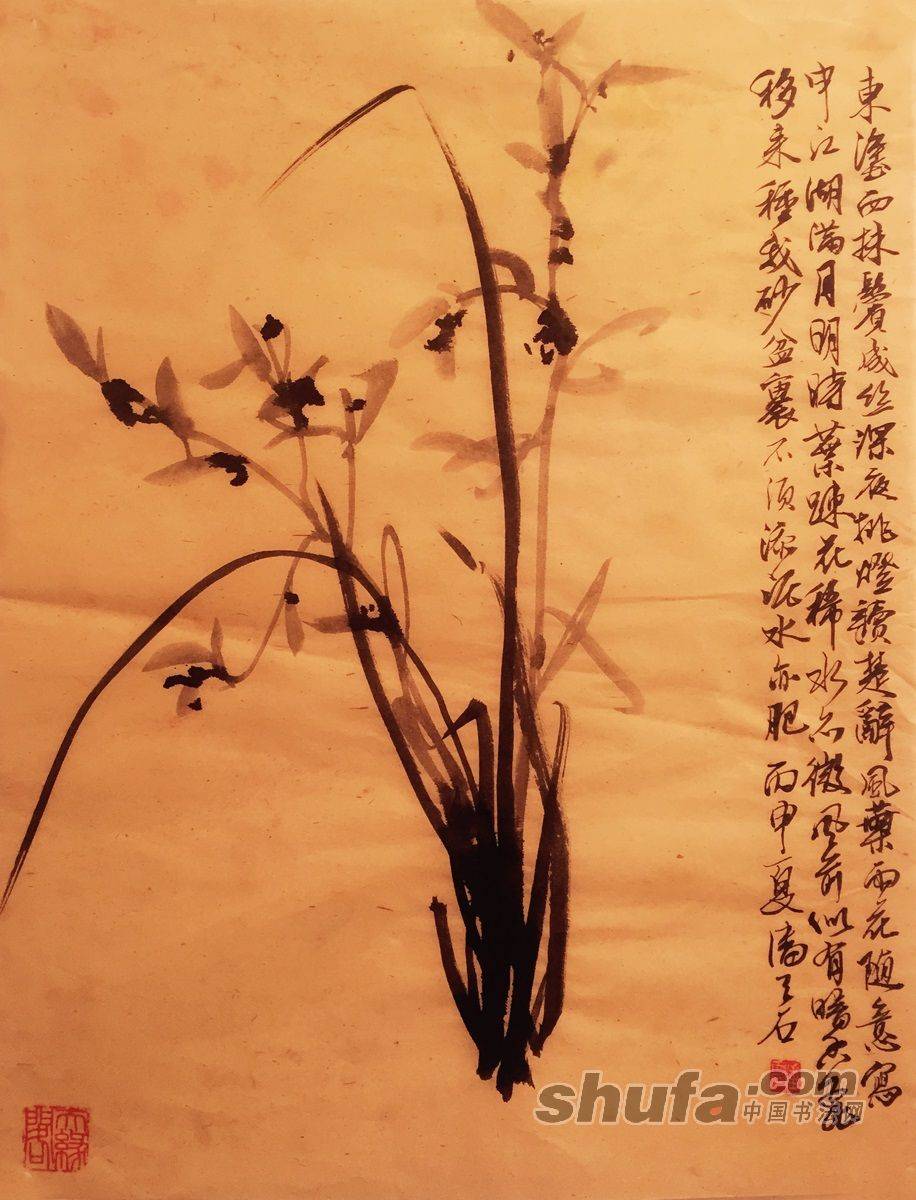 東塗西抹鬢成丝深夜挑燈讀楚辭風葉雨花随意寫
申江湖滿月明時葉疎花稀水微風前似有暗香飛
移来種我砂盆裏不須添泥水亦肥 丙申夏潘石
shufa.com
中国书法网